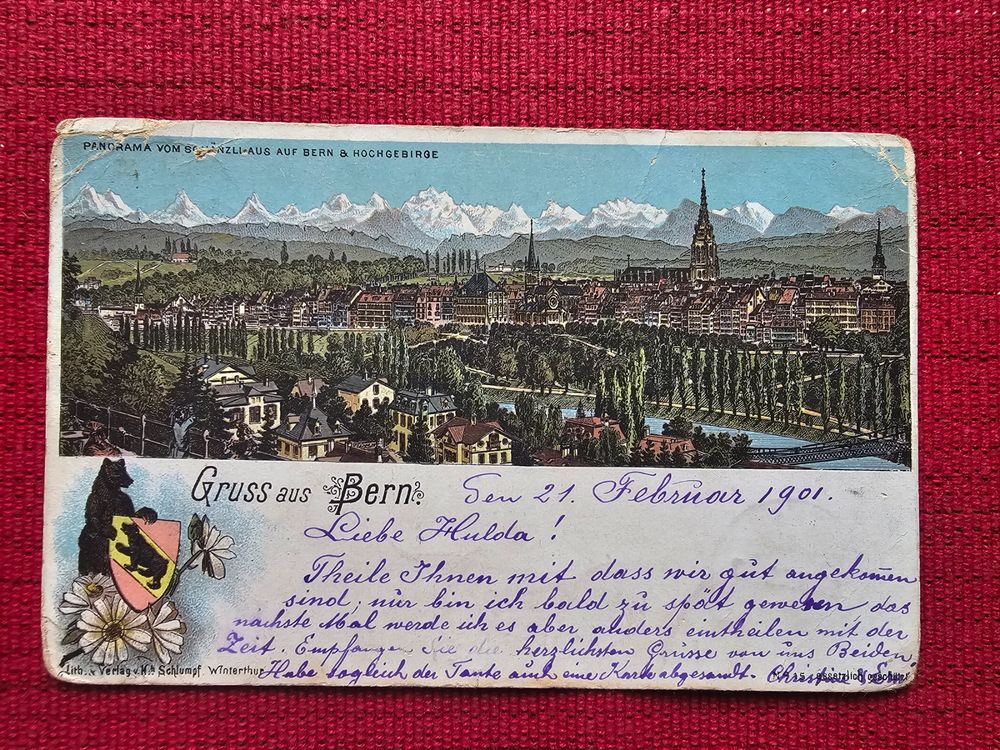 PANORAMA VOM SCHÄNZLI AUS AUF BERN & HOCHGEBIRGE
Gruss aus Bern. Den 21. Februar 1901.
Liebe Hulda!
Theile Ihnen mit dass wir gut angekom̄en
sind, nur bin ich bald zu spät gewesen das
nächste Mal werde ich es aber anders eintheilen mit der
Zeit. Empfangen Sie die herzlichsten Grüsse von uns Beiden
Habe sogleich der Tante auch eine Karte abgesandt. Christine
Lith. & Verlag v. Schlumpf. Winterthur
gesetzlich geschützt